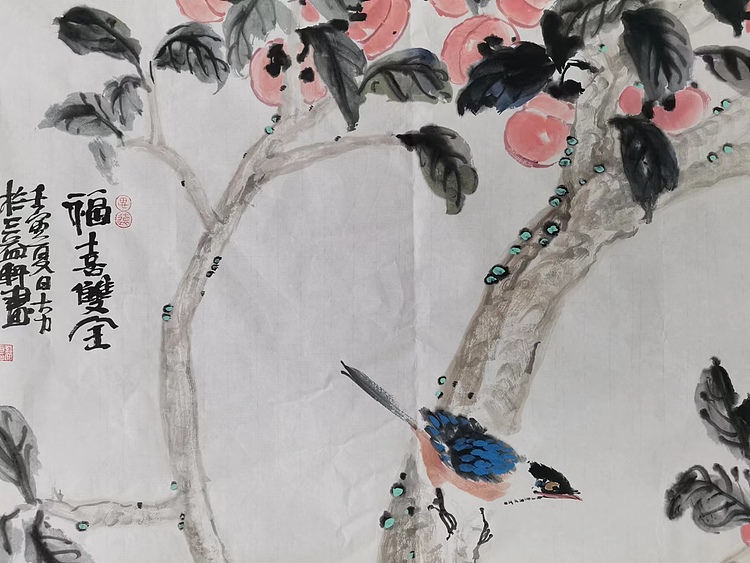 福喜雙全
壬寅夏日大力
於三益軒畫